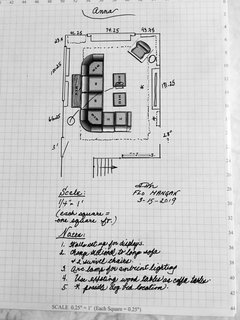 Anna
41.25 74.25 43.75
3'
Scale:
1/4" = 1'
(each square =
one square ft.)
3-15-2019
Notes:
1. Walls set up for displays
2. Change sectional to longer sofa
& 2 swivel chairs
3. Arc lamp for ambient lighting
4. Use existing wood tables as coffee tables
5. * possible dog bed location
SCALE 0.25" = 1' (Each Square = 0.25")